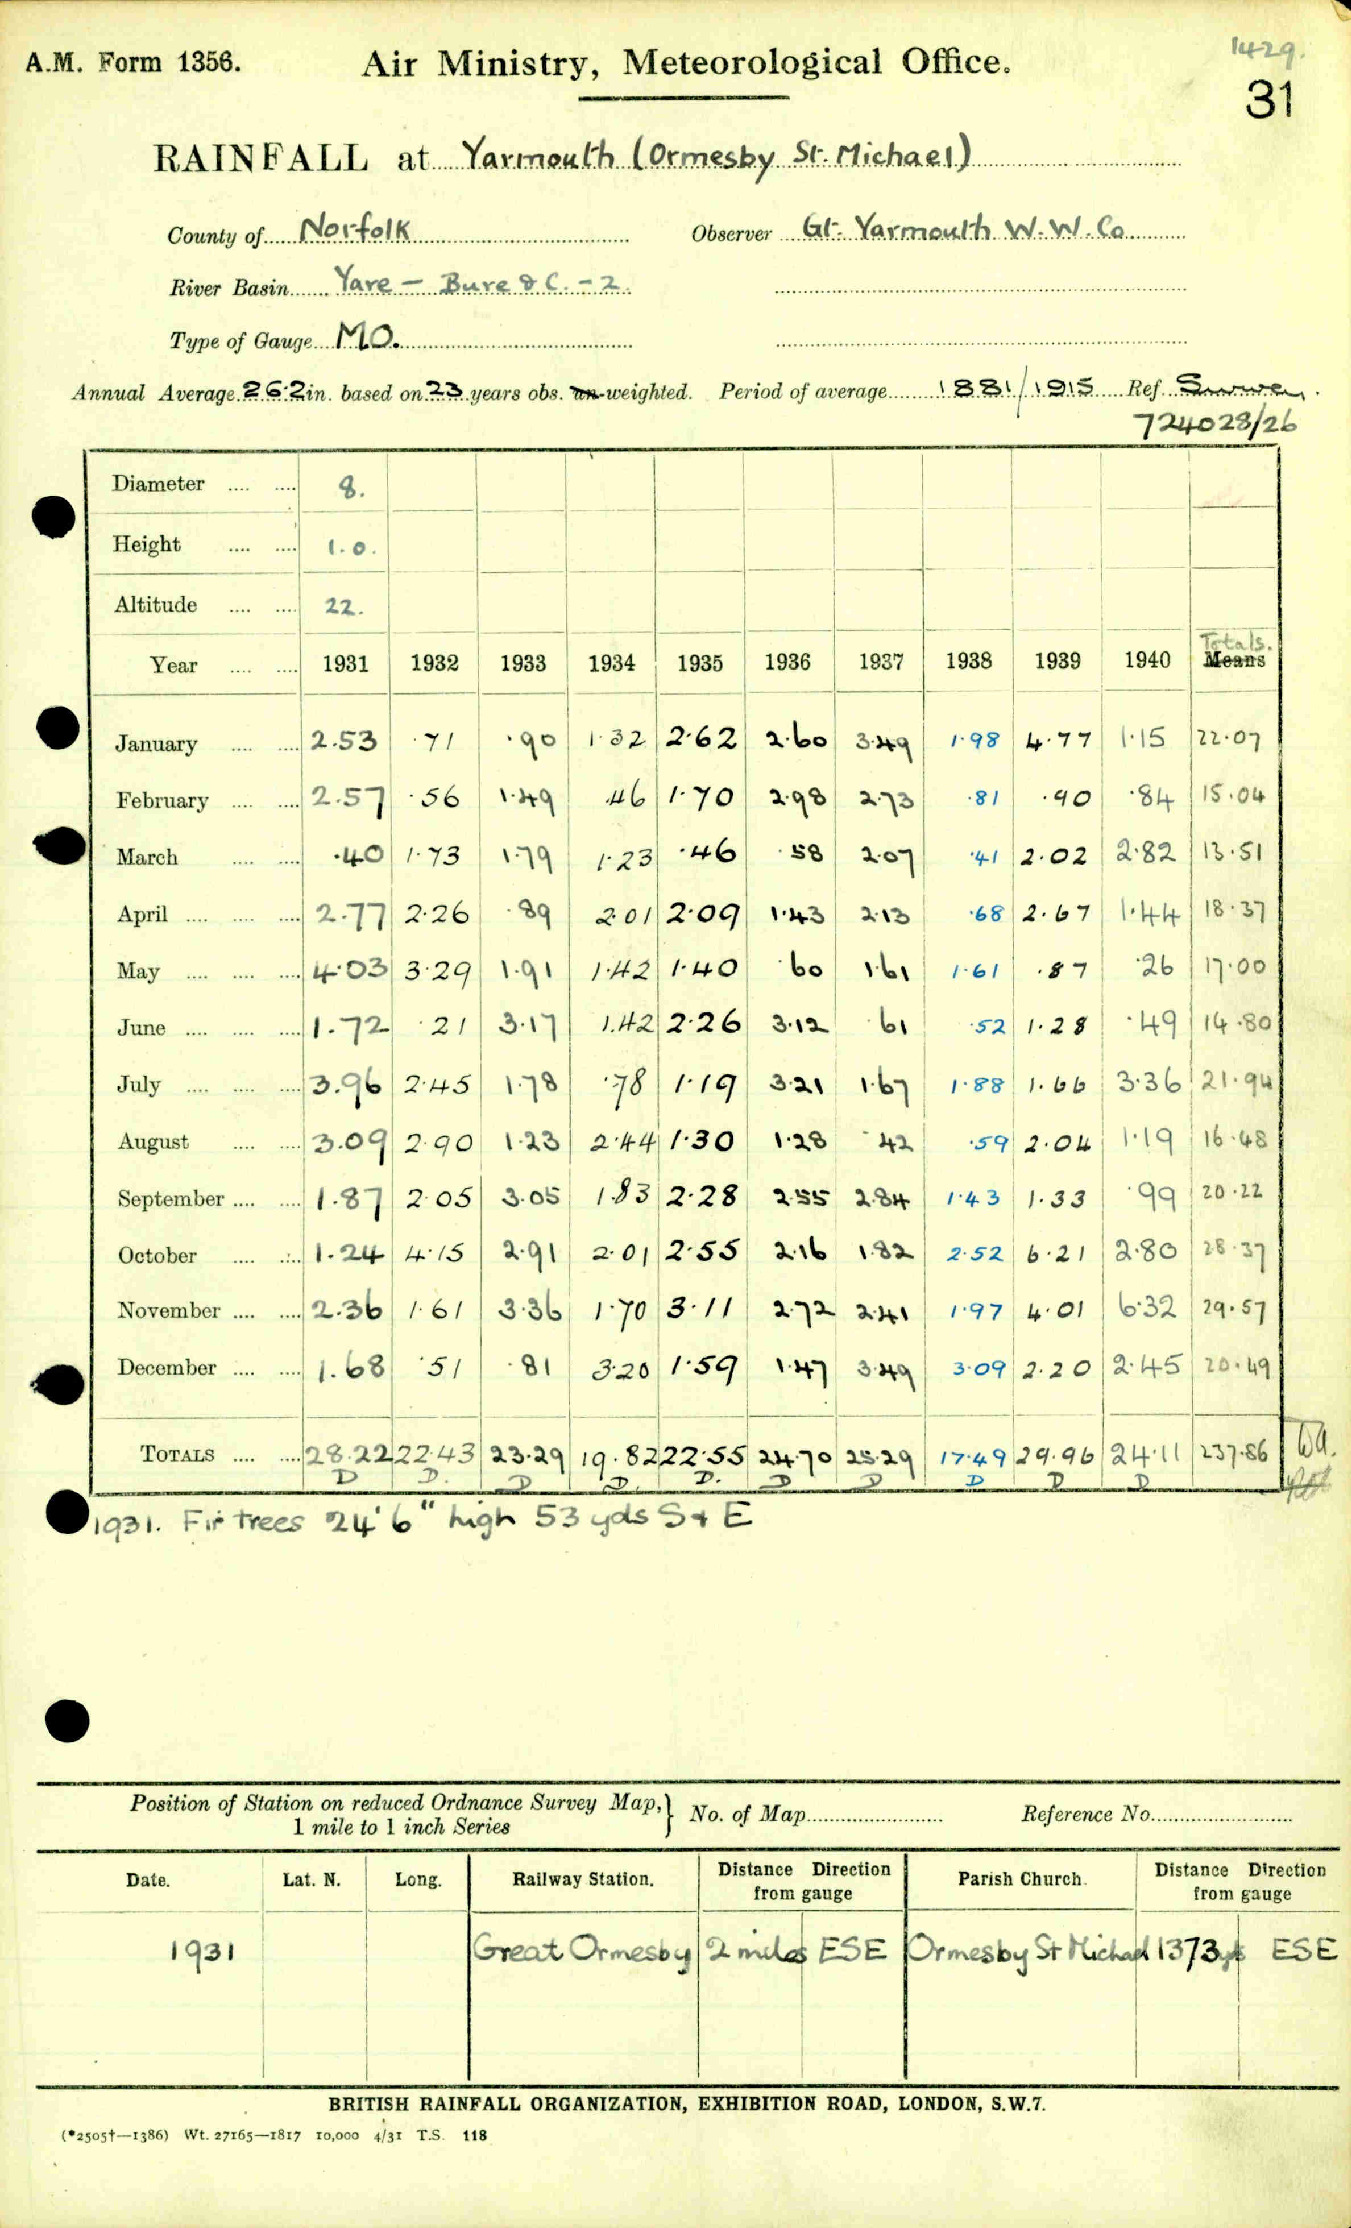 1429.
A.M. Form 1356. Air Ministry, Meteorological Office.
31
RAINFALL at Yarmouth (Ormesby St. Michael)
County of Norfolk Observer Gt. Yarmouth W.W.Co
River Basin Yare — Bure & C. - 2
Type of Gauge MO.
Annual Average 26.2 in. based on 23 years obs. un-weighted. Period of average 1881/1915 Ref.
724028/26
Diameter 8.
Height 1.0.
Altitude 22.
Totals.
Year 1931 1932 1933 1934 1935 1936 1937 1938 1939 1940 Means
January 2.53 .71 .90 1.32 2.62 2.60 3.49 1.98 4.77 1.15 22.07
February 2.57 .56 1.49 .46 1.70 2.98 2.73 .81 .90 .84 15.04
March .40 1.73 1.79 1.23 .46 .58 2.07 .41 2.02 2.82 13.51
April 2.77 2.26 .89 2.01 2.09 1.43 2.13 .68 2.67 1.44 18.37
May 4.03 3.29 1.91 1.42 1.40 .60 1.61 1.61 .87 .26 17.00
June 1.72 .21 3.17 1.42 2.26 3.12 .61 .52 1.28 .49 14.80
July 3.96 2.45 1.78 .78 1.19 3.21 1.67 1.88 1.66 3.36 21.94
August 3.09 2.90 1.23 2.44 1.30 1.28 .42 .59 2.04 1.19 16.48
September 1.87 2.05 3.05 1.83 2.28 2.55 2.84 1.43 1.33 .99 20.22
October 1.24 4.15 2.91 2.01 2.55 2.16 1.82 2.52 6.21 2.80 28.37
November 2.36 1.61 3.36 1.70 3.11 2.72 2.41 1.97 4.01 6.32 29.57
December 1.68 .51 .81 3.20 1.59 1.47 3.49 3.09 2.20 2.45 20.49
TOTALS 28.22 22.43 23.29 19.82 22.55 24.70 25.29 17.49 29.96 24.11 237.86
D D. D D. D. D D D D D
1931. Fir trees 24' 6" high 53 yds S & E
Position of Station on reduced Ordnance Survey Map,} No. of Map Reference No.
1 mile to 1 inch Series
Date. Lat. N. Long. Railway Station. Distance Direction from gauge Parish Church. Distance Direction from gauge
1931 Great Ormesby 2 miles ESE Ormesby St Michael 1373 yds ESE
BRITISH RAINFALL ORGANIZATION, EXHIBITION ROAD, LONDON, S.W.7.
(*2505†—1386) Wt. 27165—1817 10,000 4/31 T.S. 118